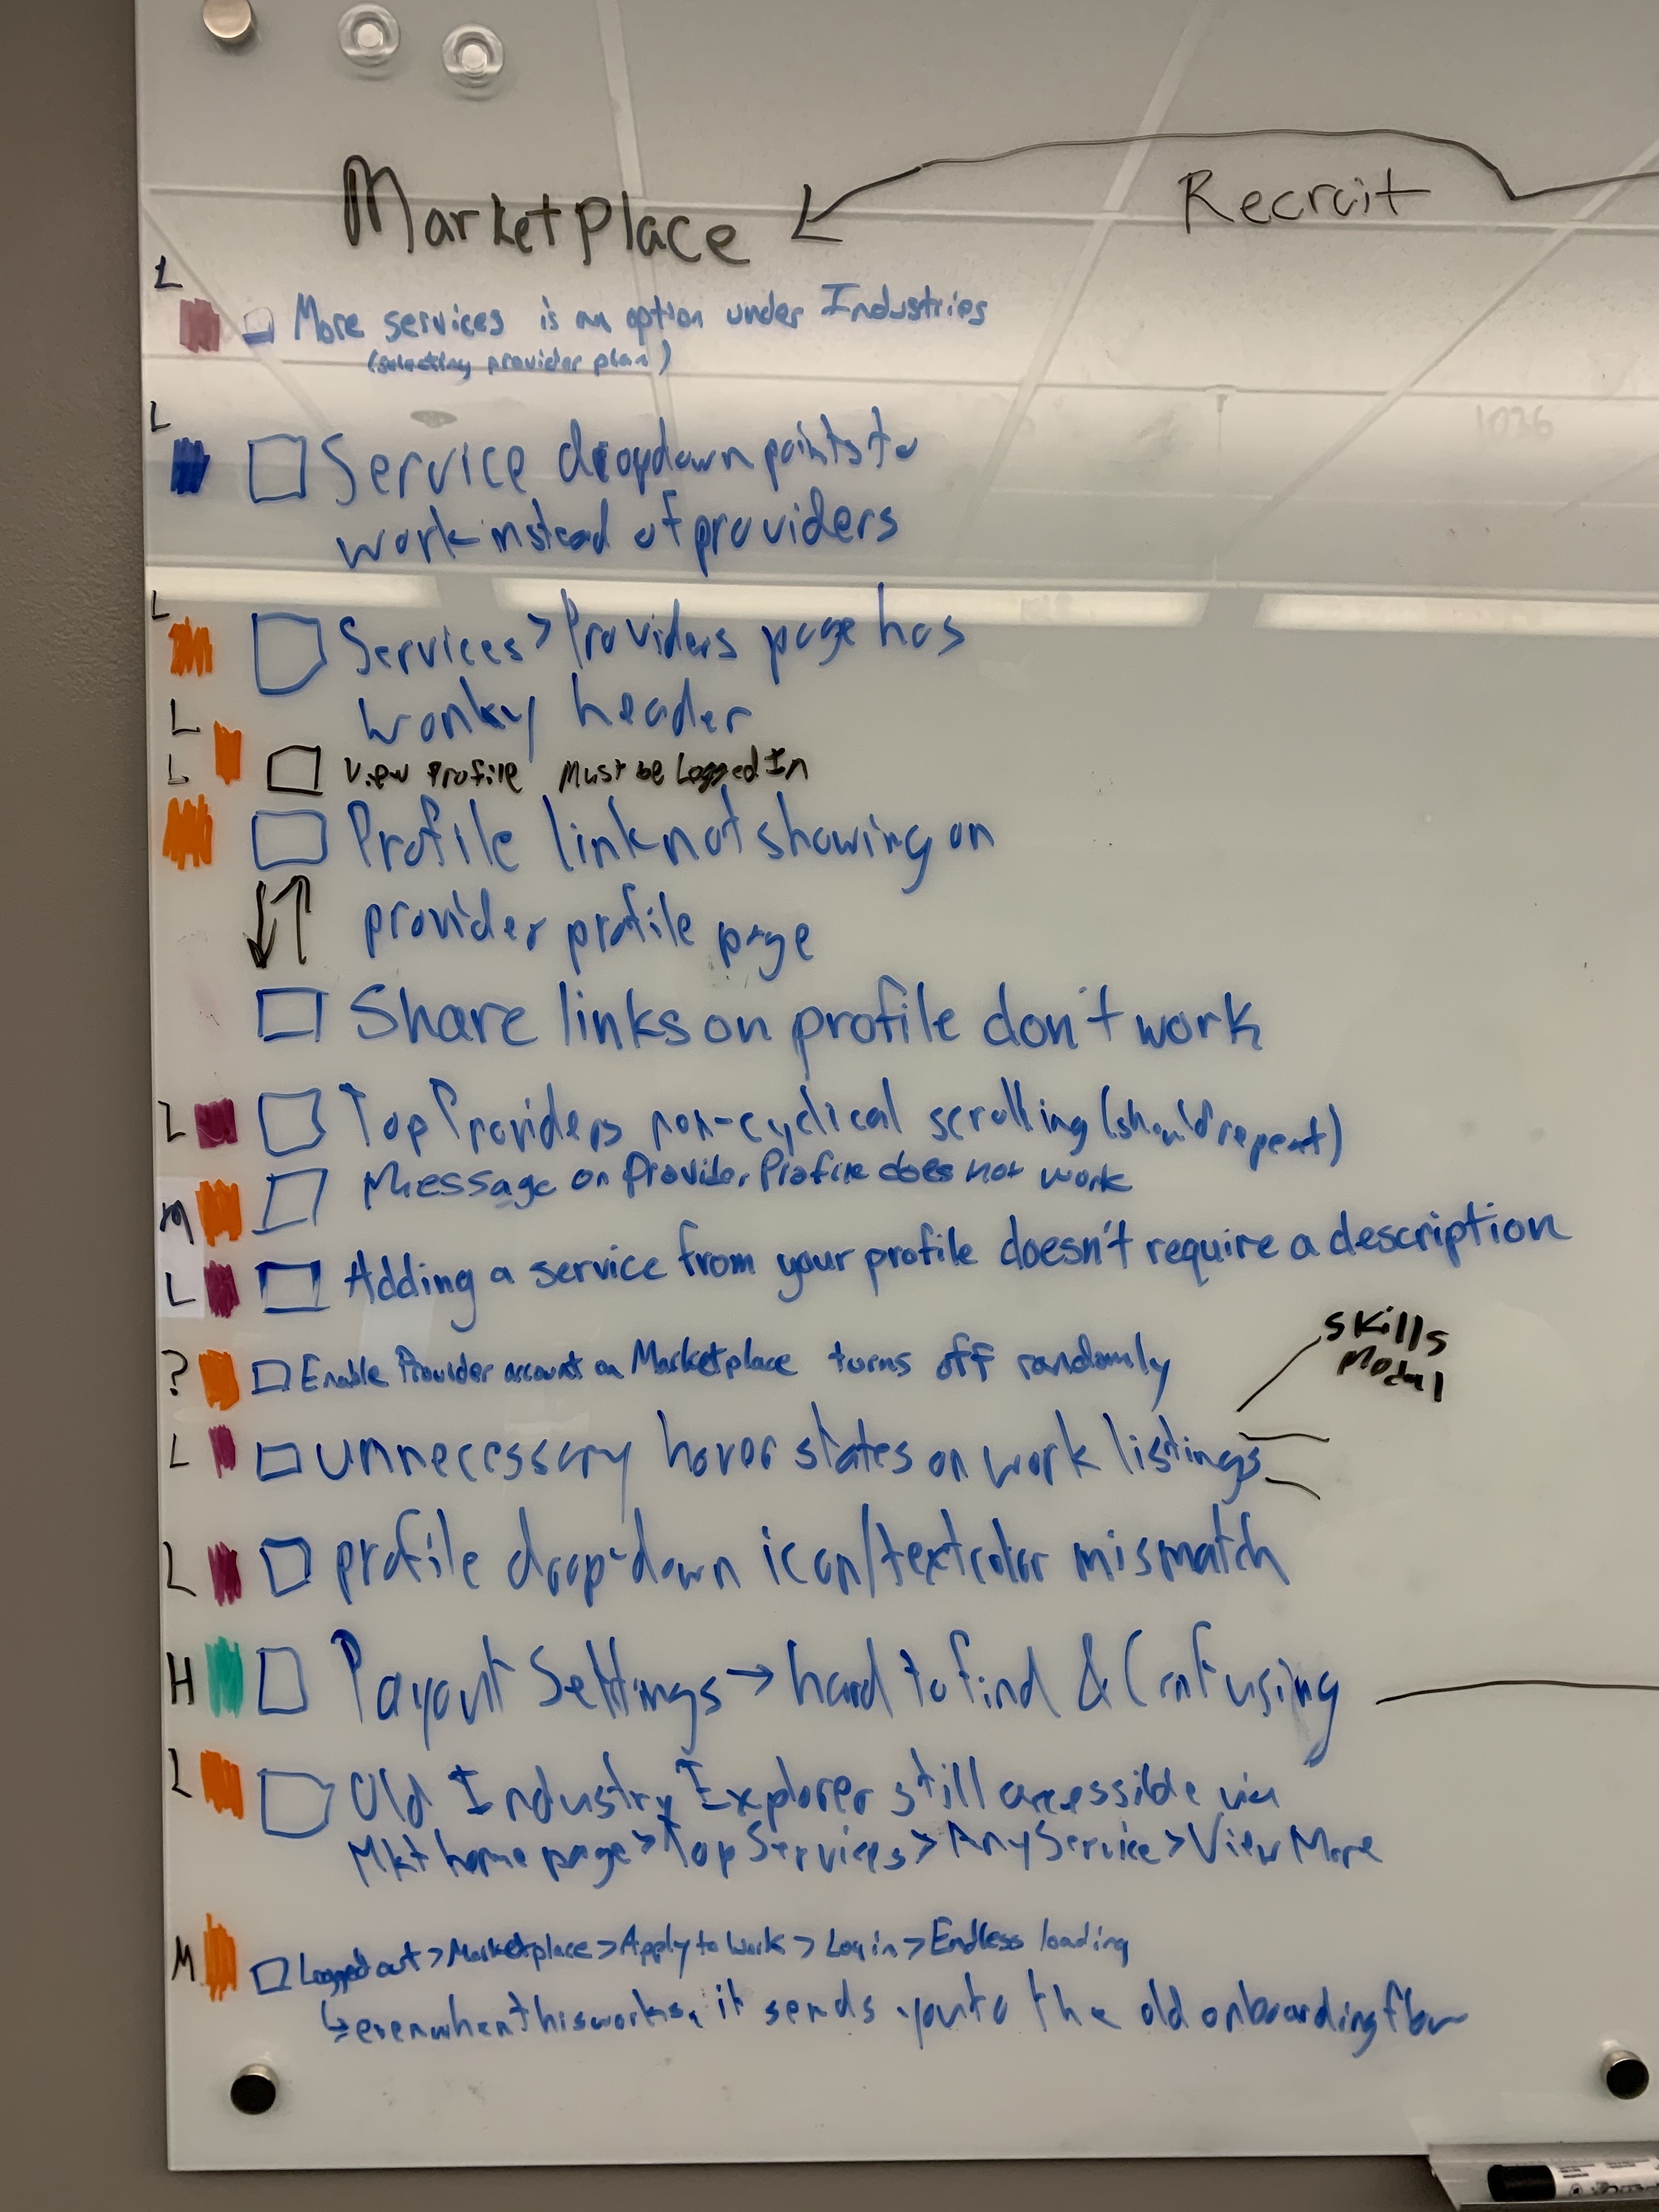 Marketplace
Recruit
L
More services is an option under Industries
(selecting provider plan)
1036
L
Service dropdown points to
work instead of providers
L
Services > Providers page has
wonky header
L
View Profile Must be Logged In
L
Profile link not showing on
provider profile page
Share links on profile don't work
L
Top Providers non-cyclical scrolling (should repeat)
M
Message on Provider Profile does not work
L
Adding a service from your profile doesn't require a description
?
Enable Provider account on Marketplace turns off randomly
skills
Modal
L
unnecessary hover states on work listings
L
profile drop-down icon/text color mismatch
H
Payout Settings → hard to find & Confusing
L
Old Industry Explorer still accessible via
Mkt home page > Top Services > Any Service > View More
M
Logged out > Marketplace > Apply to Work > Log in > Endless loading
↳ even when this works, it sends you to the old onboarding flow